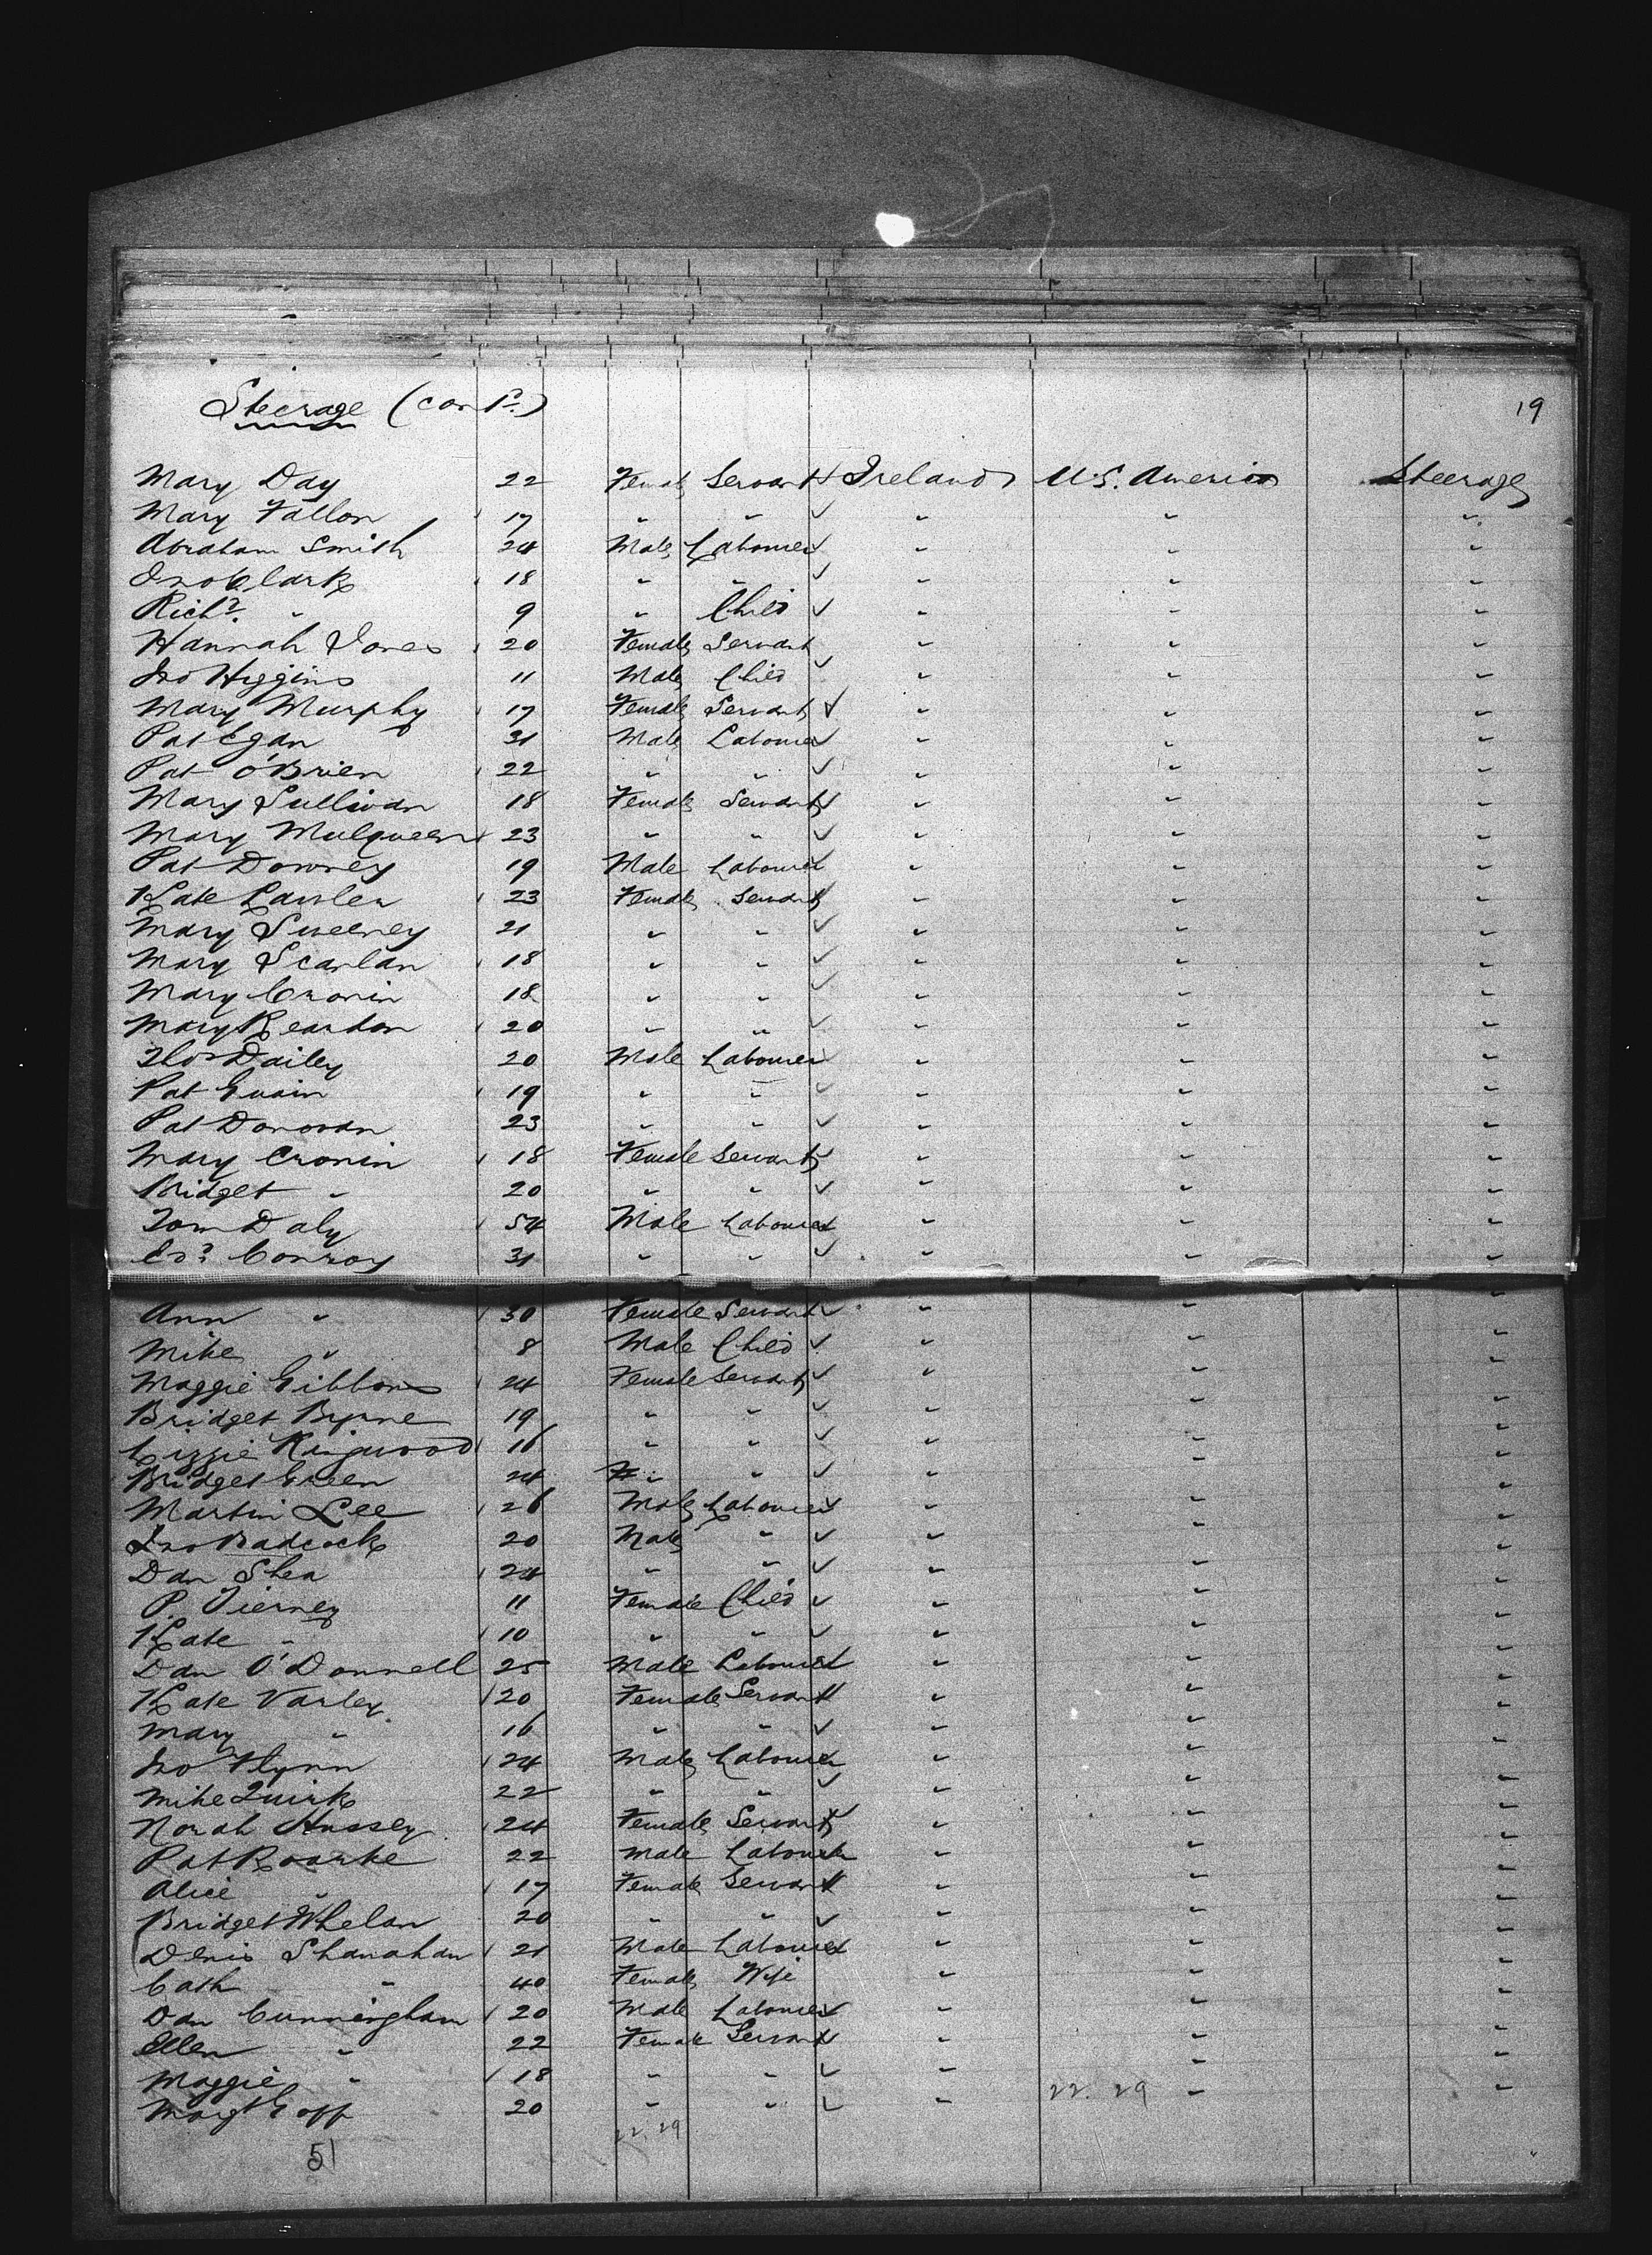 Steerage (cont.d) 19
Mary Day 22 Female Servant Ireland U.S. America Steerage
Mary Fallon 17 " " ✓ " " "
Abraham Smith 24 Male Labourer ✓ " " "
Jno Clark 18 " " ✓ " " "
Richd. " 9 " Child ✓ " " "
Hannah Jones 20 Female Servant " " "
Jno Higgins 11 Male Child ✓ " " "
Mary Murphy 17 Female Servant ✓ " " "
Pat Egan 31 Male Labourer ✓ " " "
Pat O'Brien 22 " " ✓ " " "
Mary Sullivan 18 Female Servant ✓ " " "
Mary Mulqueen 23 " " ✓ " " "
Pat Downey 19 Male Labourer ✓ " " "
Kate Lawler 23 Female Servant ✓ " " "
Mary Sweeney 21 " " ✓ " " "
Mary Scanlan 18 " " ✓ " " "
Mary Cronin 18 " " ✓ " " "
Mary Reardon 20 " " ✓ " " "
Thos Dailey 20 Male Labourer ✓ " " "
Pat 19 " " ✓ " " "
Pat Donovan 23 " " ✓ " " "
Mary Cronin 18 Female Servant ✓ " " "
Bridget " 20 " " ✓ " " "
Tom Daly 54 Male Labourer ✓ " " "
Edd. Conroy 31 " " ✓ " " "
Ann " 30 Female Servant ✓ " " "
Mike " 8 Male Child ✓ " " "
Maggie Gibbons 24 Female Servant ✓ " " "
Bridget Byrne 19 " " ✓ " " "
Lizzie Kingwood 16 " " ✓ " " "
Bridget Green 24 " " ✓ " " "
Martin Lee 26 Male Labourer ✓ " " "
Jno Badcock 20 Male " ✓ " " "
Dan Shea 24 " " ✓ " " "
P. Tierney 11 Female Child ✓ " " "
Kate " 10 " " ✓ " " "
Dan O'Donnell 25 Male Labourer ✓ " " "
Kate Varley 20 Female Servant ✓ " " "
Mary " 16 " " ✓ " " "
Jno Flynn 24 Male Labourer ✓ " " "
Mike Quirk 22 " " ✓ " " "
Norah Hussey 24 Female Servant ✓ " " "
Pat Roarke 22 Male Labourer ✓ " " "
Alice " 17 Female Servant ✓ " " "
Bridget Whelan 20 " " ✓ " " "
Denis Shanahan 21 Male Labourer ✓ " " "
Cath " 40 Female Wife " " "
Dan Cunningham 20 Male Labourer ✓ " " "
Ellen " 22 Female Servant ✓ " " "
Maggie " 18 " " ✓ " " "
Margt Goff 20 " " ✓ " 22. 29 " "
51 22.29